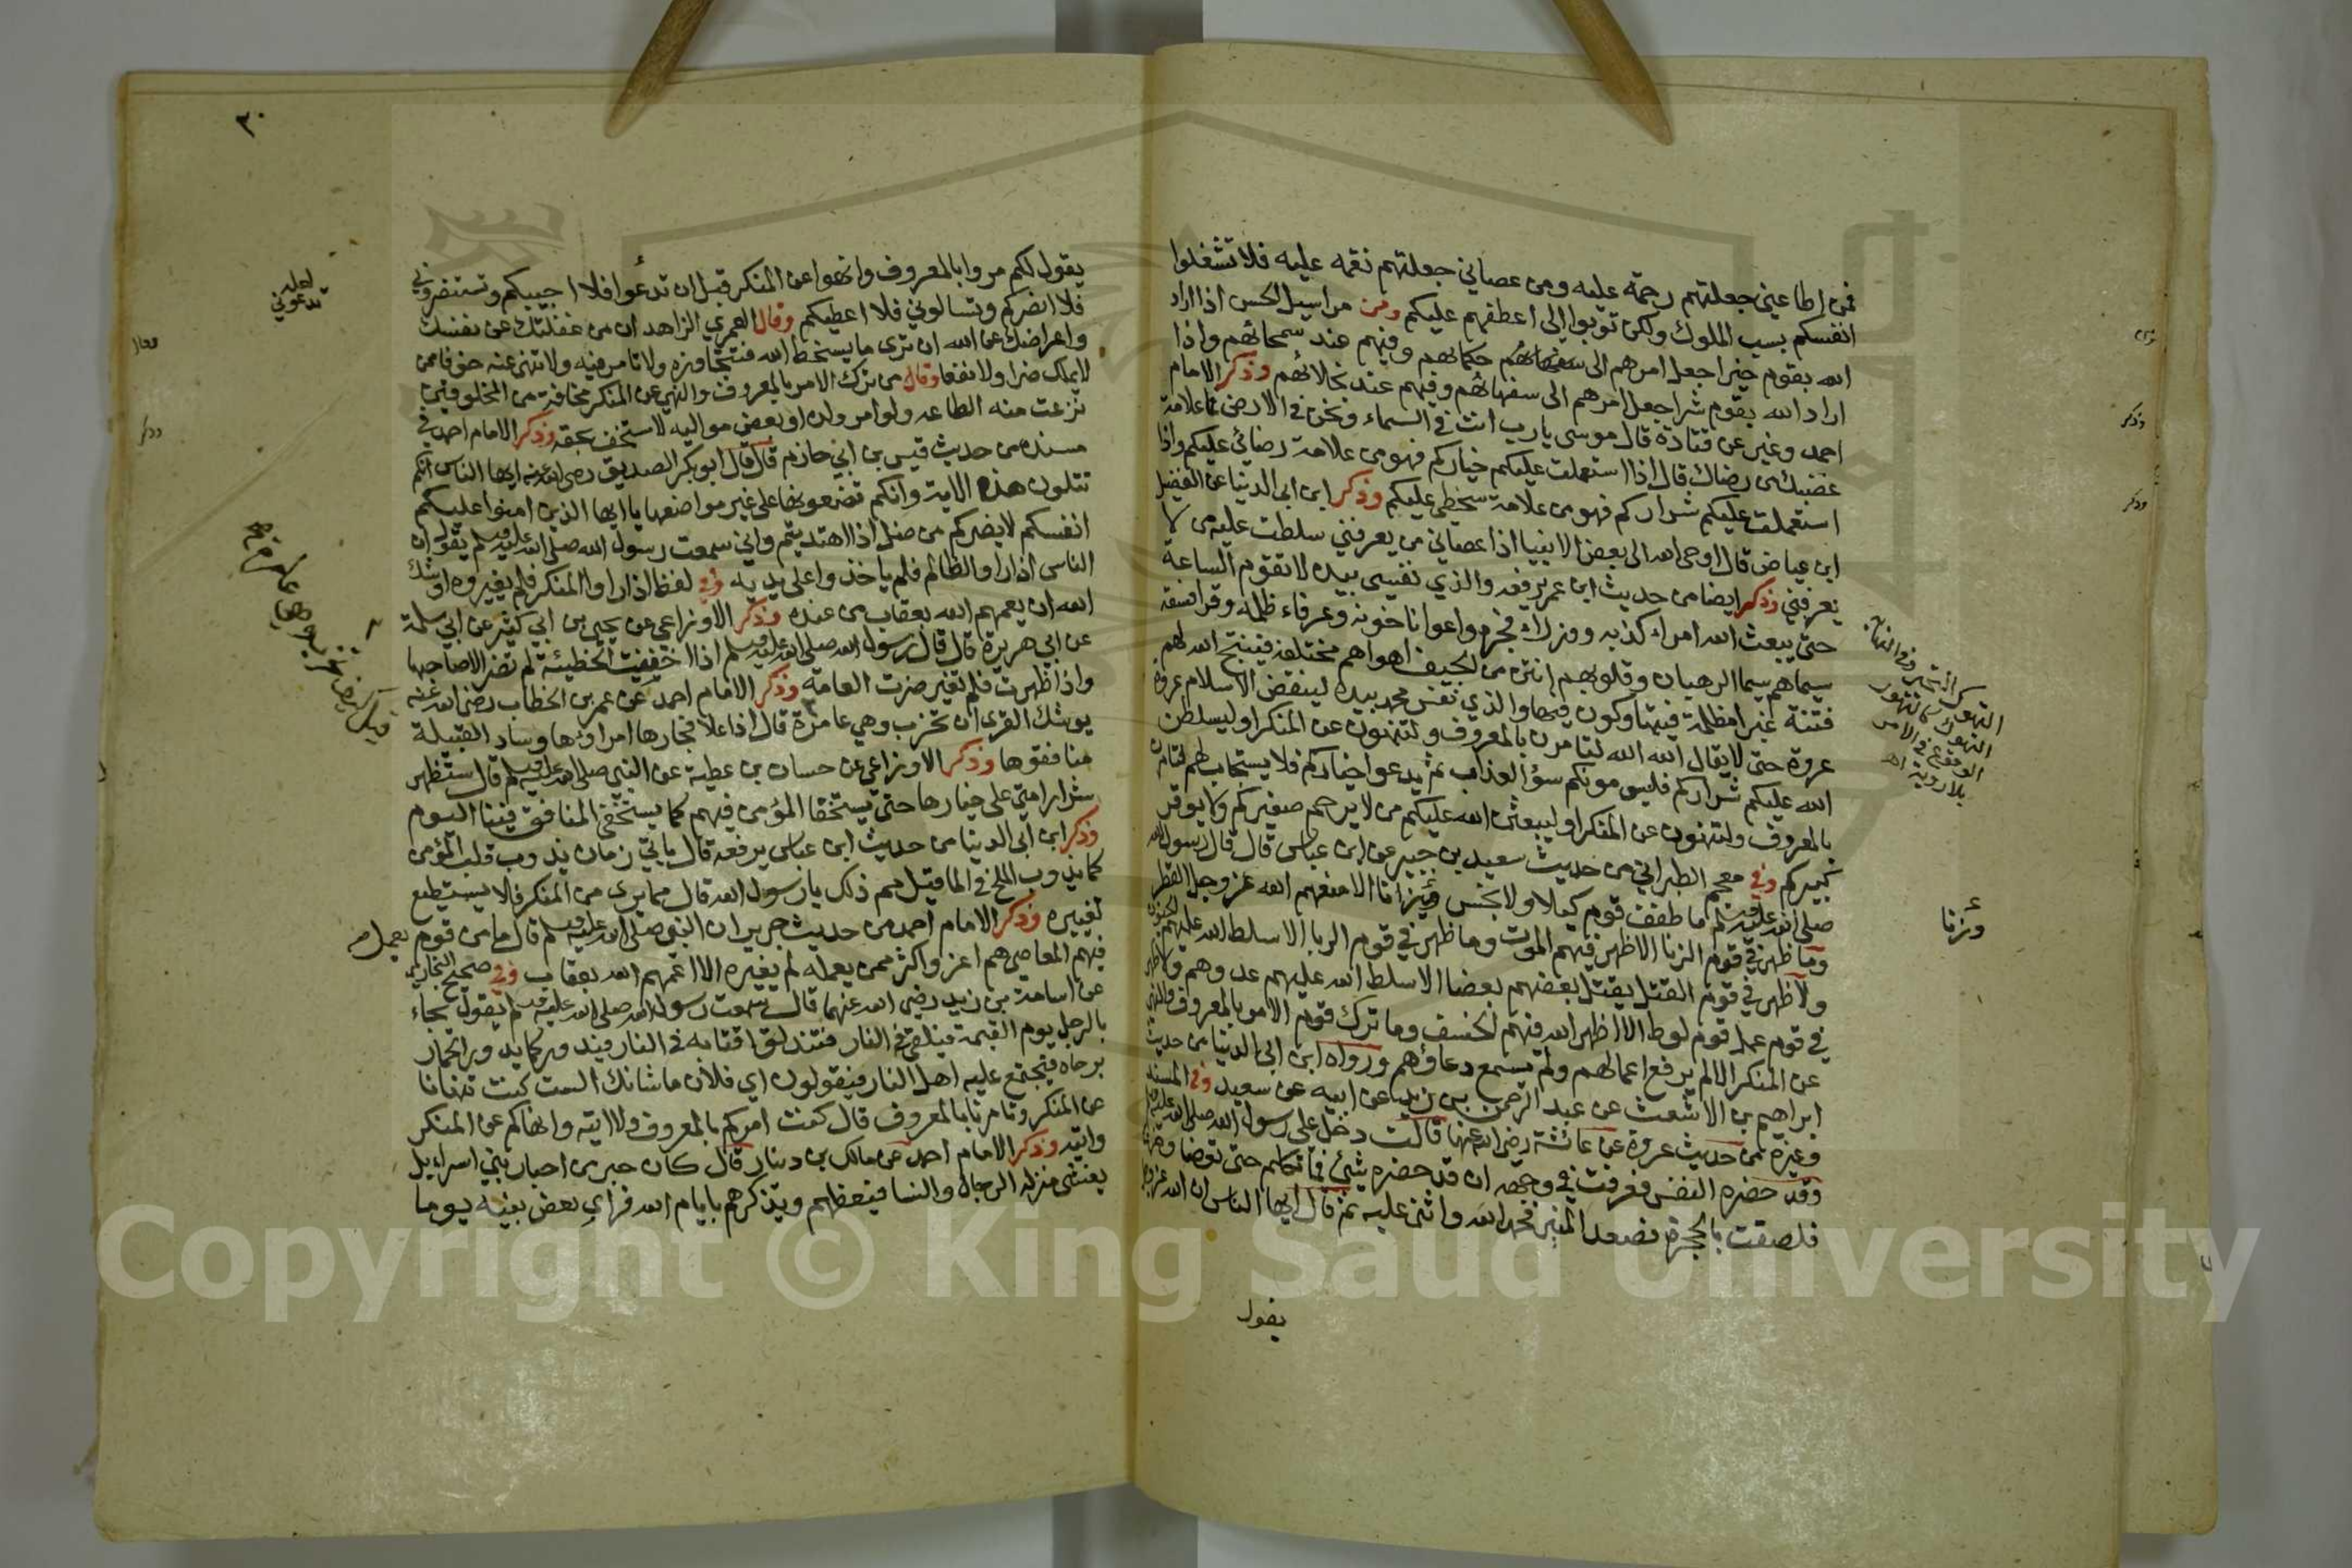 فمن اطاعني جعلتهم رحمة عليه ومن عصاني جعلتهم نقمه عليه فلا تشغلوا
انفسكم بسب الملوك ولكن توبوا الي اعطفهم عليكم ومن مراسيل الحسن اذا اراد
الله بقوم خيرا جعل امرهم الى حكمائهم وفيهم عند سمحائهم واذا
اراد الله بقوم شرا جعل امرهم الى سفهائهم وفيهم عند بخلائهم وذكر الامام
احمد وغيره عن قتادة قال موسى يارب انت في السماء ونحن في الارض فما علامة
غضبك من رضاك قال اذا استعملت عليكم خياركم فهو من علامة رضائي عليكم واذا
استعملت عليكم شراركم فهو من علامة سخطي عليكم وذكر ابن ابي الدنيا عن الفضيل
ابن عياض قال اوحى الله الى بعض الانبيا اذا عصاني من يعرفني سلطت عليه من لا
يعرفني وذكر ايضا من حديث ابن عمر يرفعه والذي نفسي بيده لا تقوم الساعة
حتى يبعث الله امراء كذبه ووزراء فجره واعوانا خونه وعرفاء ظلمه وقرا فسقه
سيماهم سيما الرهبان وقلوبهم انتن من الجيف اهواهم مختلفه فيفتح الله لهم
فتنة غبرا مظلمة فيتهاوكون فيها والذي نفس محمد بيده لينقضن الاسلام عروة
عروة حتى لا يقال الله الله لتامرن بالمعروف ولتنهون عن المنكر او ليسلطن
الله عليكم شراركم فليسومونكم سوء العذاب ثم يدعو اخياركم فلا يستجاب لهم لتامرن
بالمعروف ولتنهون عن المنكر او ليبعثن الله عليكم من لا يرحم صغيركم ولا يوقر
كبيركم وفي معجم الطبراني من حديث سعيد بن جبير عن ابن عباس قال قال رسول الله
صلى الله عليه وسلم ما طفف قوم كيلا ولا بخس ميزانا الا منعهم الله عز وجل القطر
وما ظهر في قوم الزنا الا ظهر فيهم الموت وما ظهر في قوم الربا الا سلط الله عليهم الجنون
ولا ظهر في قوم القتل يقتل بعضهم بعضا الا سلط الله عليهم عدوهم ولا ظهر
في قوم عمل قوم لوط الا ظهر الله فيهم الخسف وما ترك قوم الامر بالمعروف والنهي
عن المنكر الا لم يرفع اعمالهم ولم يسمع دعاؤهم ورواه ابن ابي الدنيا من حديث
ابراهيم بن الاشعث عن عبد الرحمن بن زيد عن ابيه عن سعيد وفي المسند
وغيره من حديث عروة عن عائشة رضي الله عنها قالت دخل علي رسول الله صلى الله عليه وسلم
وقد حضره النفس فعرفت في وجهه ان قد حضره شيئ فما تكلم حتى توضا وخرج
فلصقت بالحجرة فصعد المنبر فحمد الله واثنى عليه ثم قال ايها الناس ان الله عز وجل
يقول
وذكر
وذكر
التهوك التحير وفي النهاية
التهوك كالتهور
الوقوع في الامر
بلا روية اه
وزنا
٣٠
يقول لكم مروا بالمعروف وانهوا عن المنكر قبل ان تدعوا فلا اجيبكم وتستنصروني
فلا انصركم وتسالوني فلا اعطيكم وقال العمري الزاهد ان من غفلتك عن نفسك
واعراضك عن الله ان ترى ما يسخط الله فتتجاوزه ولا تامر فيه ولا تنهى عنه خوفا ممن
لا يملك ضرا ولا نفعا وقال من ترك الامر بالمعروف والنهي عن المنكر مخافة من المخلوقين
نزعت منه الطاعه ولو امر ولده او بعض مواليه لاستخف بحقه وذكر الامام احمد في
مسنده من حديث قيس بن ابي حازم قال قال ابو بكر الصديق رضى الله عنه ايها الناس انكم
تتلون هذه الاية وانكم تضعونها على غير مواضعها يا ايها الذين امنوا عليكم
انفسكم لا يضركم من ضل اذا اهتديتم واني سمعت رسول الله صلى الله عليه وسلم يقول ان
الناس اذا راو الظالم فلم ياخذوا على يديه وفي لفظ اذا راوا المنكر فلم يغيروه اوشك
الله ان يعمهم الله بعقاب من عنده وذكر الاوزاعي عن يحيى بن ابي كثير عن ابي سلمة
عن ابي هريرة قال قال رسول الله صلى الله عليه وسلم اذا اخفيت الخطيئة لم تضر الا صاحبها
واذا ظهرت فلم تغير ضرت العامة وذكر الامام احمد عن عمر بن الخطاب رضى الله عنه
يوشك القرى ان تخرب وهي عامرة قال اذا علا فجارها امراؤها وساد القبيلة
منافقوها وذكر الاوزاعي عن حسان بن عطية عن النبي صلى الله عليه وسلم قال ستظهر
شرار امتي على خيارها حتى يستخفا المؤمن فيهم كما يستخفى المنافق فينا اليوم
وذكر ابن ابي الدنيا من حديث ابن عباس يرفعه قال ياتي زمان يذوب قلب المؤمن
كما يذوب الملح في الما قيل مم ذلك يا رسول الله قال مما يرى من المنكر فلا يستطيع
تغييره وذكر الامام احمد من حديث جرير ان النبي صلى الله عليه وسلم قال ما من قوم يعمل
فيهم المعاصي هم اعز واكثر ممن يعمله لم يغيره الا اعمهم الله بعقاب وفي صحيح البخاري
عن اسامة بن زيد رضي الله عنهما قال سمعت رسول الله صلى الله عليه وسلم يقول يجاء
بالرجل يوم القيمة فيلقى في النار فتندلق اقتابه في النار فيدور كما يدور الحمار
برحاه فيجتمع عليه اهل النار فيقولون اي فلان ما شانك الست كنت تنهانا
عن المنكر وتامرنا بالمعروف قال كنت امركم بالمعروف ولا اتيه وانهاكم عن المنكر
واتيه وذكر الامام احمد عن مالك بن دينار قال كان حبر من احبار بني اسرايل
يغشى منزله الرجال والنسا فيعظهم ويذكرهم بايام الله فراي بعض بنيه يوما
لعله
تدعوني